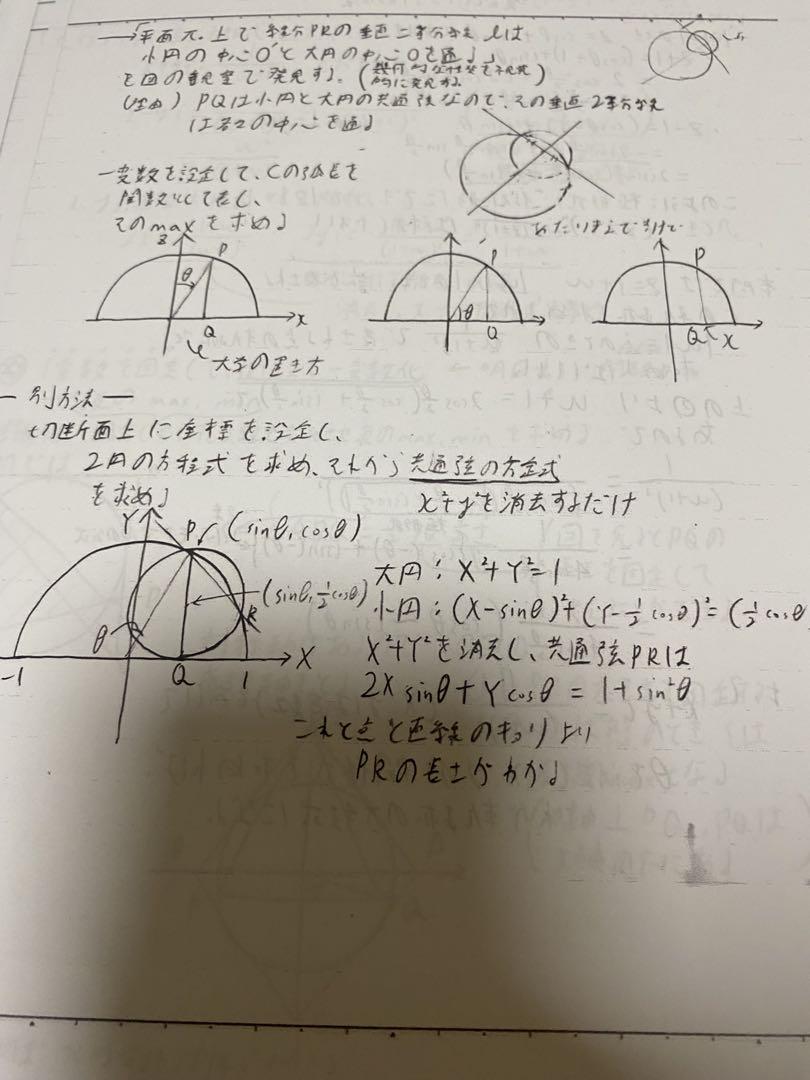 →平面π上で線分PRの垂直二等分線lは
小円の中心O'と大円の中心Oを通る
を図の対称で発見する。
(理由) PQは小円と大円の共通弦なので、その垂直2等分線
は各々の中心を通る
一変数を設定して、Cの弧長を
関数化して表し、
そのmaxを求める
z
P
θ
Q
x
P
θ
Q
P
Q
x
大学の置き方
― 別方法 ―
切断面上に座標を設定し、
2円の方程式を求め、それから共通弦の方程式
を求める
x²+y²を消去するだけ
Y
P
(sinθ, cosθ)
(sinθ, ½cosθ)
R
θ
-1
Q
1
X
大円: X²+Y²=1
小円: (X-sinθ)²+(Y-½cosθ)²=(½cosθ
X²+Y²を消去し、共通弦PRは
2X sinθ+Y cosθ = 1+sin²θ
これと点と直線のキョリより
PRの長さがわかる